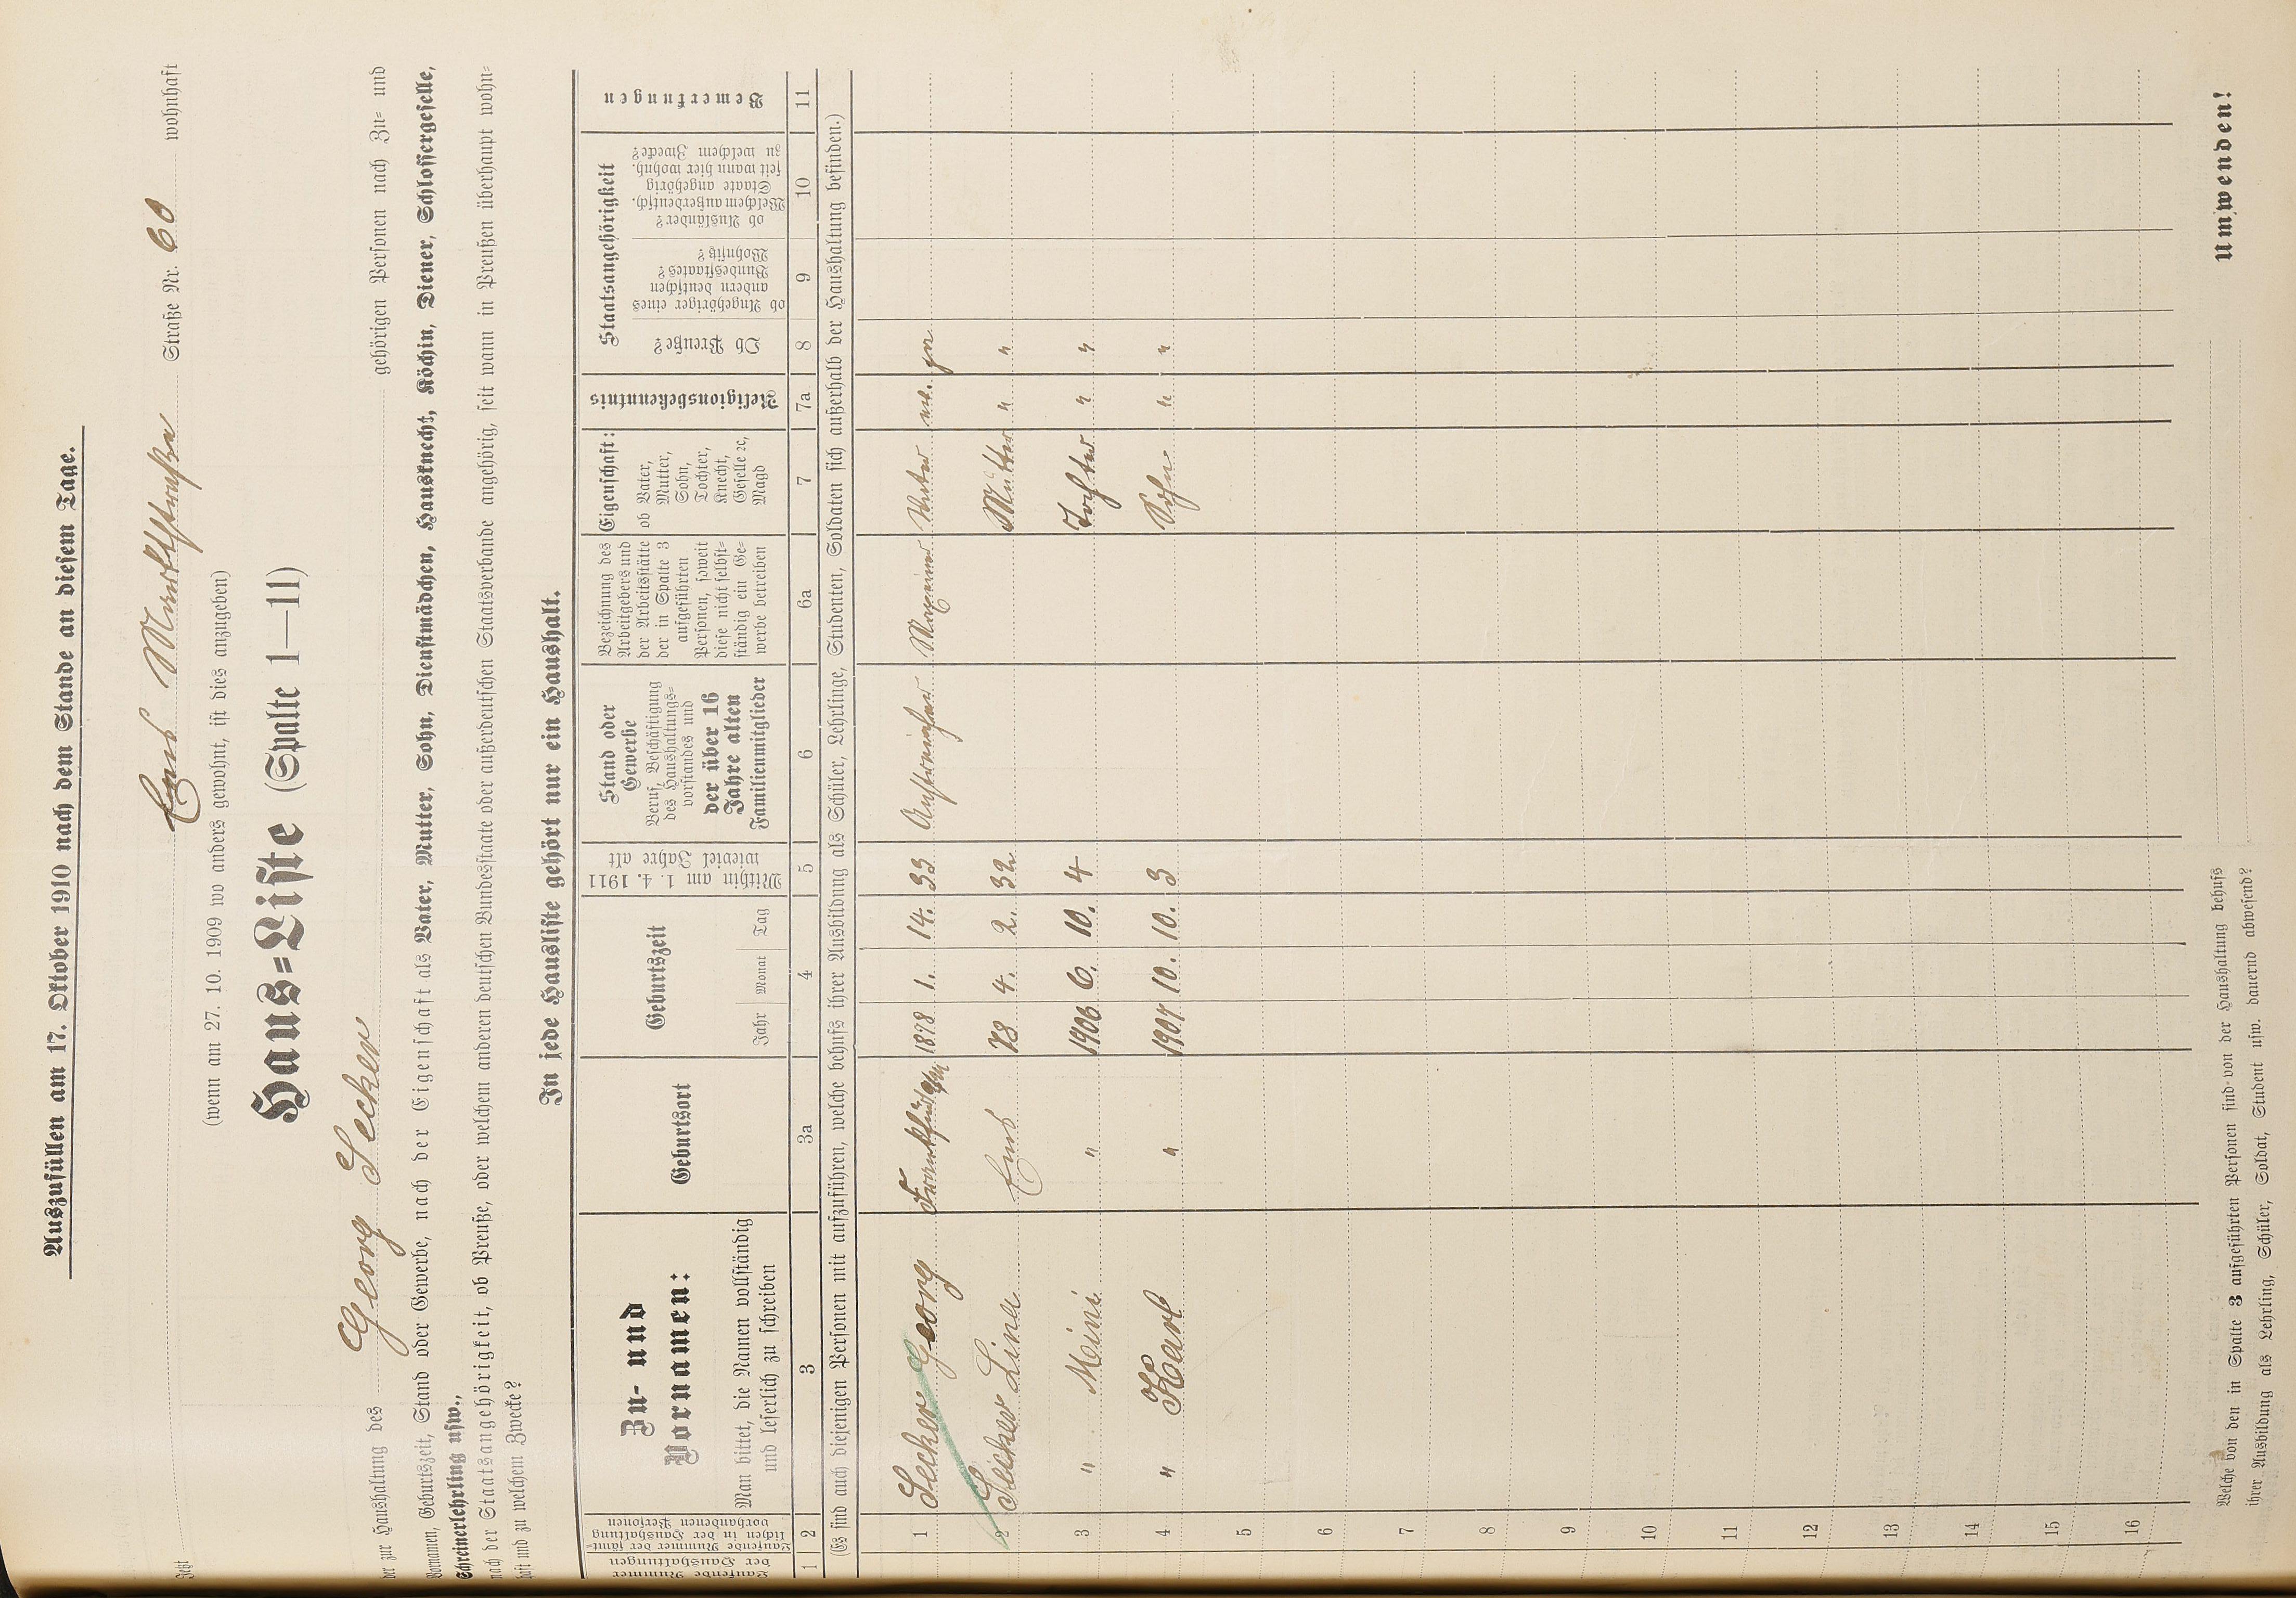 Auszufüllen am 17. Oktober 1910 nach dem Stande an diesem Tage.
Jetzt Ems Marktstraße Straße Nr. 60 wohnhaft
(wenn am 27. 10. 1909 wo anders gewohnt, ist dies anzugeben)
Haus=Liste (Spalte 1—11)
der zur Haushaltung des Georg Secker gehörigen Personen nach Zu= und
Vornamen, Geburtszeit, Stand oder Gewerbe, nach der Eigenschaft als Vater, Mutter, Sohn, Dienstmädchen, Hausknecht, Köchin, Diener, Schlossergeselle,
Schreinerlehrling usw.,
nach der Staatsangehörigkeit, ob Preuße, oder welchem anderen deutschen Bundesstaate oder außerdeutschen Staatsverbande angehörig, seit wann in Preußen überhaupt wohn=
haft und zu welchem Zwecke?
In jede Hausliste gehört nur ein Haushalt.
Laufende Nummer der Haushaltungen
Laufende Nummer der sämt=
lichen in der Haushaltung
vorhandenen Personen
Zu- und
Vornamen:
Man bittet, die Namen vollständig
und leserlich zu schreiben
Geburtsort
Geburtszeit
Jahr Monat Tag
Mithin am 1. 4. 1911
wieviel Jahre alt
Stand oder
Gewerbe
Beruf, Beschäftigung
des Haushaltungs=
vorstandes und
der über 16
Jahre alten
Familienmitglieder
Bezeichnung des
Arbeitgebers und
der Arbeitsstätte
der in Spalte 3
aufgeführten
Personen, soweit
diese nicht selbst=
ständig ein Ge=
werbe betreiben
Eigenschaft:
ob Vater,
Mutter,
Sohn,
Tochter,
Knecht,
Geselle ec,
Magd
Religionsbekenntnis
Staatsangehörigkeit
Ob Preuße?
ob Angehöriger eines
andern deutschen
Bundesstaates?
Wohnsitz?
ob Ausländer?
Welchem außerdeutsch.
Staate angehörig
seit wann hier wohnh.
zu welchem Zwecke?
Bemerkungen
1 2 3 3a 4 5 6 6a 7 7a 8 9 10 11
(Es sind auch diejenigen Personen mit aufzuführen, welche behufs ihrer Ausbildung als Schüler, Lehrlinge, Studenten, Soldaten sich außerhalb der Haushaltung befinden.)
1 Secker Georg 1878 1. 14. 33 Anstreicher Vater ev. ja
2 Secker Lina Ems 78 4. 2. 32 Mutter " "
3 " Meini " 1906 6. 10. 4 Tochter " "
4 " Karl " 1907 10. 10. 3 Sohn " "
5
6
7
8
9
10
11
12
13
14
15
16
Welche von den in Spalte 3 aufgeführten Personen sind von der Haushaltung behufs
ihrer Ausbildung als Lehrling, Schüler, Soldat, Student usw. dauernd abwesend?
Umwenden!